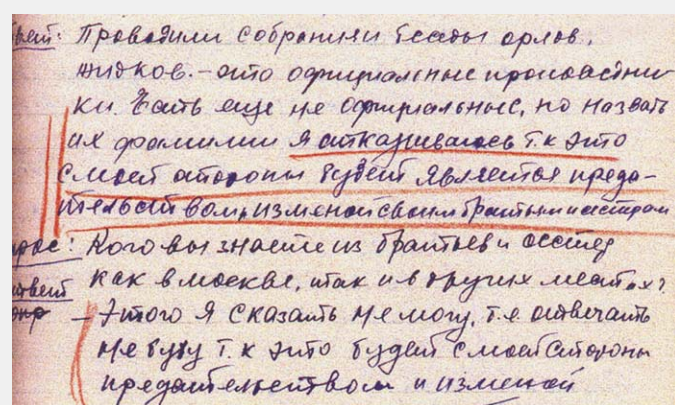 ответ: Проводили собрания и беседы орлов,
жидков. – это официальные проповедни-
ки. Есть еще не официальные, но назвать
их фамилии я отказываюсь т.к это
смоей стороны будет является преда-
тельством, изменой своим братьям и сестрам
прос: Кого вы знаете из братьев и сестер
как в москве, итак и в других местах?
ответ – Этого я сказать не могу, т.е отвечать
не буду т.к это будет смоей стороны
предательством и изменой